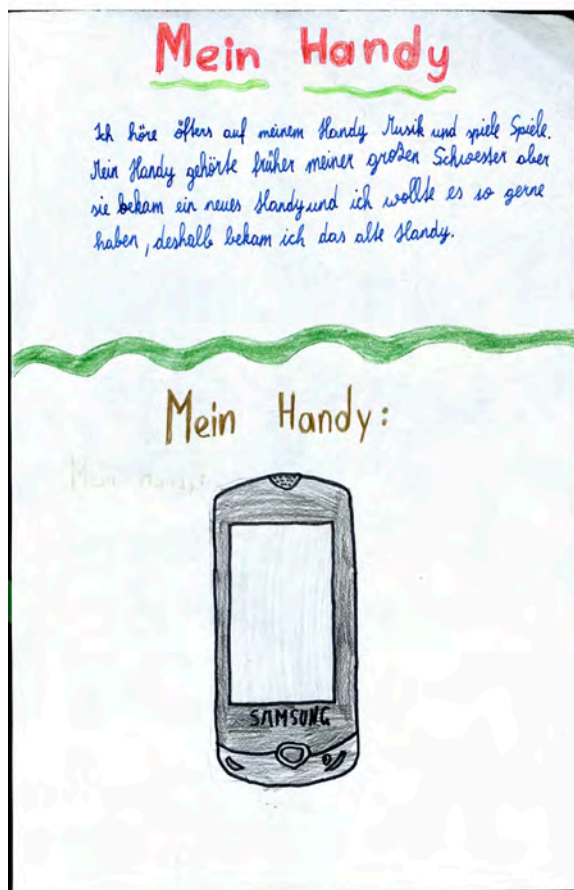 Mein Handy
Ich höre öfters auf meinem Handy Musik und spiele Spiele.
Mein Handy gehörte früher meiner großen Schwester aber
sie bekam ein neues Handy und ich wollte es so gerne
haben, deshalb bekam ich das alte Handy.
Mein Handy:
Mein Handy:
SAMSUNG